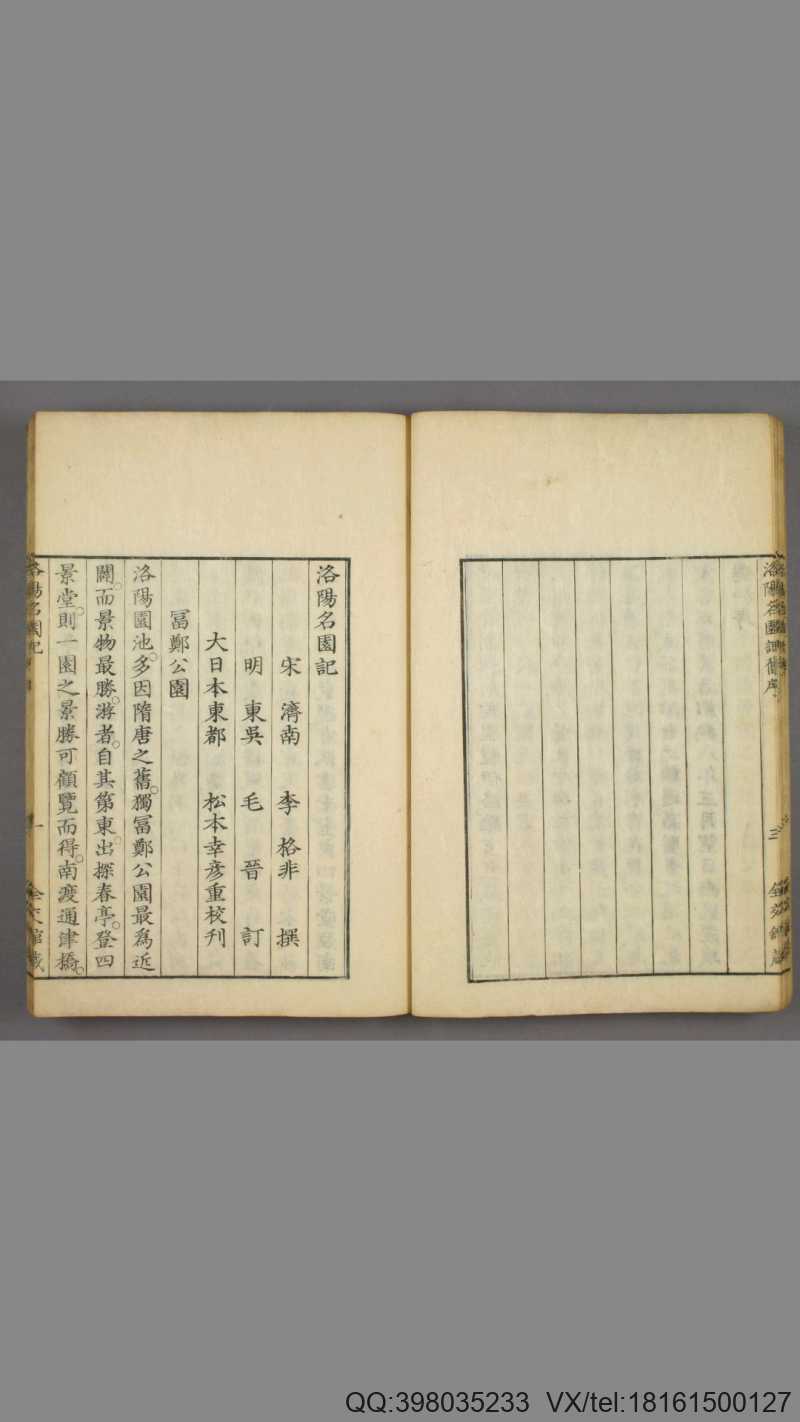 洛陽名園記舊序
三
洛陽名園記
宋 濟南 李 格非 撰
明 東吳 毛 晉 訂
大日本東都 松本幸彥重校刊
冨鄭公園
洛陽園池。多因隋唐之舊。獨冨鄭公園最爲近
闢。而景物最勝。游者。自其第東出。探春亭。登四
景堂。則一園之景勝可顧覽而得。南渡通津橋。
洛陽名園記
一
QQ:398035233 VX/tel:18161500127